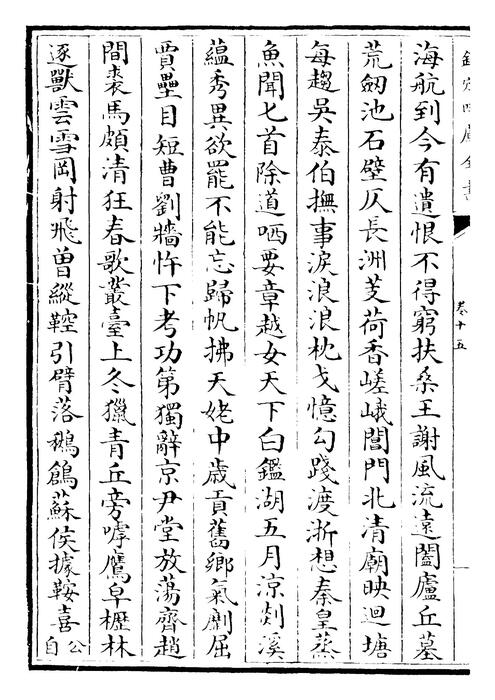 欽定四庫全書
卷十五
海航到今有遺恨不得窮扶桑王謝風流遠闔廬丘墓
荒劒池石壁仄長洲芰荷香嵯峨閶門北清廟映迴塘
每趨吳泰伯撫事淚浪浪枕戈憶勾踐渡浙想秦皇蒸
魚聞匕首除道哂要章越女天下白鑑湖五月涼剡溪
蘊秀異欲罷不能忘歸帆拂天姥中歲貢舊鄉氣劘屈
賈壘目短曹劉牆忤下考功第獨辭京尹堂放蕩齊趙
間裘馬頗清狂春歌叢臺上冬獵青丘旁呼鷹皁櫪林
逐獸雲雪岡射飛曾縱鞚引臂落鶖鶬蘇侯據鞍喜公自